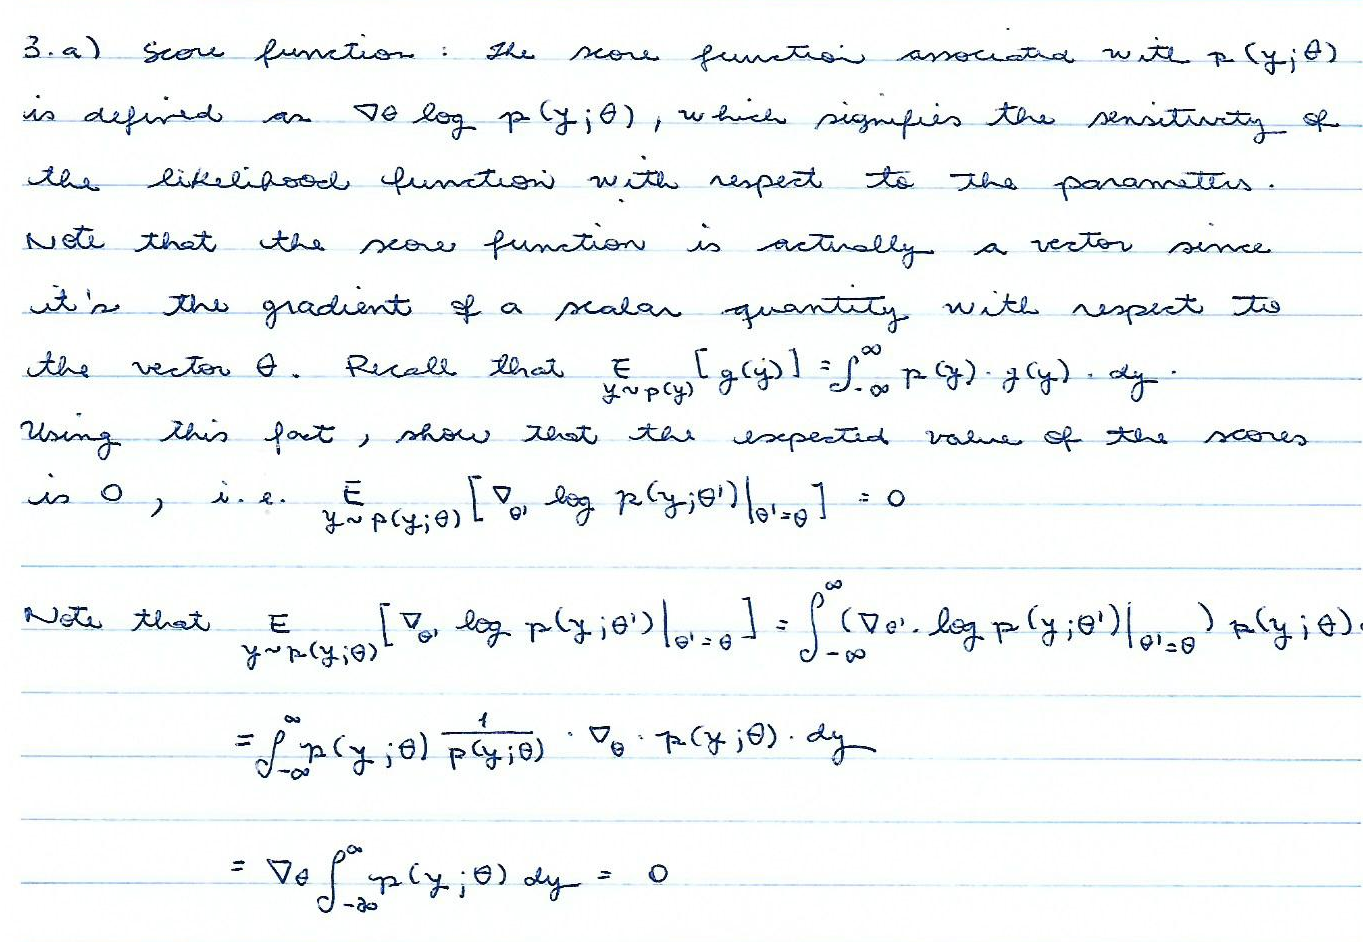 3.a) Score function : The score function associated with p(y;θ)
is defined as ∇θ log p(y;θ), which signifies the sensitivity of
the likelihood function with respect to the parameters.
Note that the score function is actually a vector since
it's the gradient of a scalar quantity with respect to
the vector θ. Recall that E_{y~p(y)} [g(y)] = ∫_{-∞}^{∞} p(y) · g(y) · dy.
Using this fact, show that the expected value of the scores
is 0, i.e. E_{y~p(y;θ)} [∇_{θ'} log p(y;θ')|_{θ'=θ}] = 0
Note that E_{y~p(y;θ)} [∇_{θ'} log p(y;θ')|_{θ'=θ}] = ∫_{-∞}^{∞} (∇_{θ'} · log p(y;θ')|_{θ'=θ}) p(y;θ).
= ∫_{-∞}^{∞} p(y;θ) 1/p(y;θ) · ∇_θ · p(y;θ) · dy
= ∇θ ∫_{-∞}^{∞} p(y;θ) dy = 0